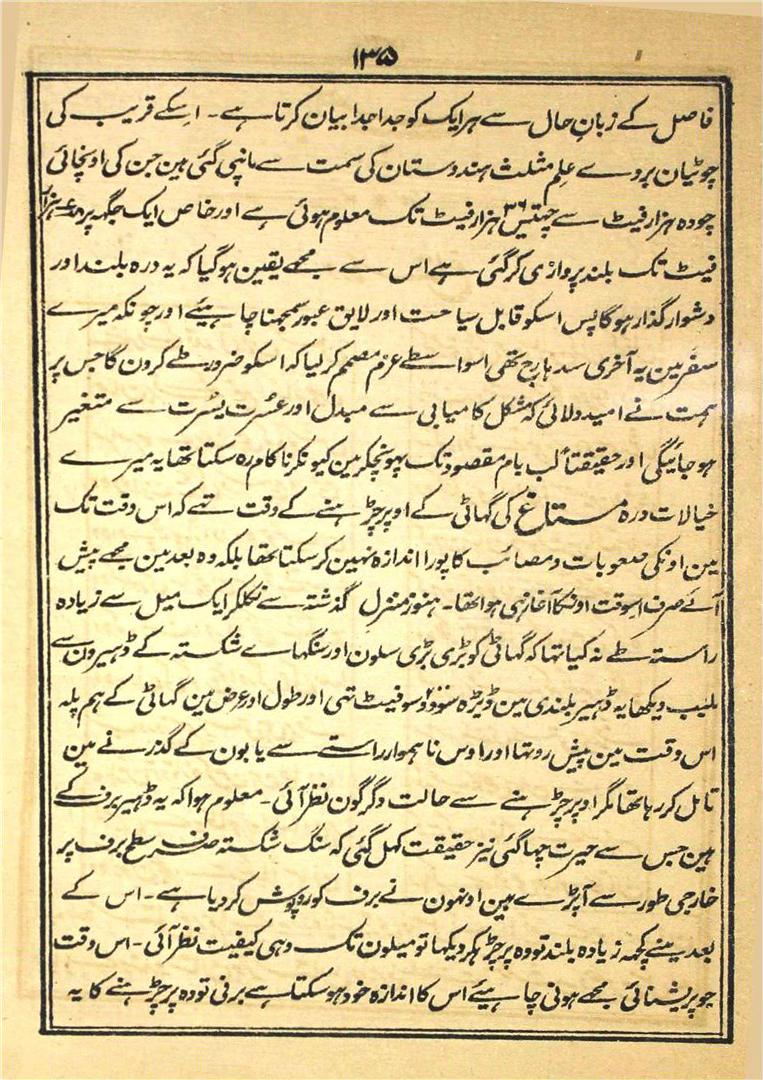 ۱۳۵
فاصل کے زبانِ حال سے ہر ایک کو جدا جدا بیان کرتا ہے ۔ اسکے قریب کی
چوٹیان بروے علم مثلث ہندوستان کی سمت سے ناپی گئی ہین جن کی اونچائی
چودہ ہزار فیٹ سے چھتیس ۳۶ ہزار فیٹ تک معلوم ہوئی ہے اور خاص ایک جگہہ پر ہزار
فیٹ تک بلند پروازی کر گئی ہے اس سے مجھے یقین ہو گیا کہ یہ درہ بلند اور
دشوار گذار ہو گا پس اسکو قابل سیاحت اور لایق عبور سمجھنا چاہیئے اور چونکہ میرے
سفر مین یہ آخری سد ہارج تھی اسواسطے عزم مصمم کر لیا کہ اسکو ضرور طے کرون گا جس پر
ہمت نے امید دلائی کہ مشکل کامیابی سے مبدل اور عسرت یسرت سے متغیر
ہو جائیگی اور حقیقتاً لب بام مقصود تک پہونچکر مین کیونکر ناکام رہ سکتا تھا یہ میرے
خیالات درہ مستاغ کی گھاٹی کے اوپر چڑہنے کے وقت تھے کہ اس وقت تک
مین اونکی صعوبات و مصائب کا پورا اندازہ نہین کر سکتا تھا بلکہ وہ بعد مین مجھے پیش
آئے صرف اسوقت اونکا آغاز ہی ہوا تھا ۔ ہنوز منزل گذشتہ سے نکلکر ایک میل سے زیادہ
راستہ طے نہ کیا تھا کہ گھاٹی کو بڑی بڑی سلون اور سنگہاے شکستہ کے ڈہیرون سے
ملبب دیکھا یہ ڈہیر بلندی مین ڈیڑہ سو و دو سو فیٹ تھی اور طول اور عرض مین گھاٹی کے ہم پلہ
اس وقت مین پیش رو تھا اور اوس ناہموار راستے سے یابون کے گذرنے مین
تامل کر رہا تھا مگر اوپر چڑہنے سے حالت دگرگون نظر آئی ۔ معلوم ہوا کہ یہ ڈہیر برف کے
ہین جس سے حیرت چھا گئی نیز حقیقت کھل گئی کہ سنگ شکستہ صرف سطح برف پر
خارجی طور سے آپڑے ہین اونہون نے برف کو روپوش کر دیا ہے ۔ اس کے
بعد مینے کچھہ زیادہ بلند تودہ پر چڑہکر دیکھا تو میلون تک وہی کیفیت نظر آئی ۔ اس وقت
جو پریشانی مجھے ہونی چاہیئے اس کا اندازہ خود ہو سکتا ہے برفی تودہ پر چڑہنے کا یہ